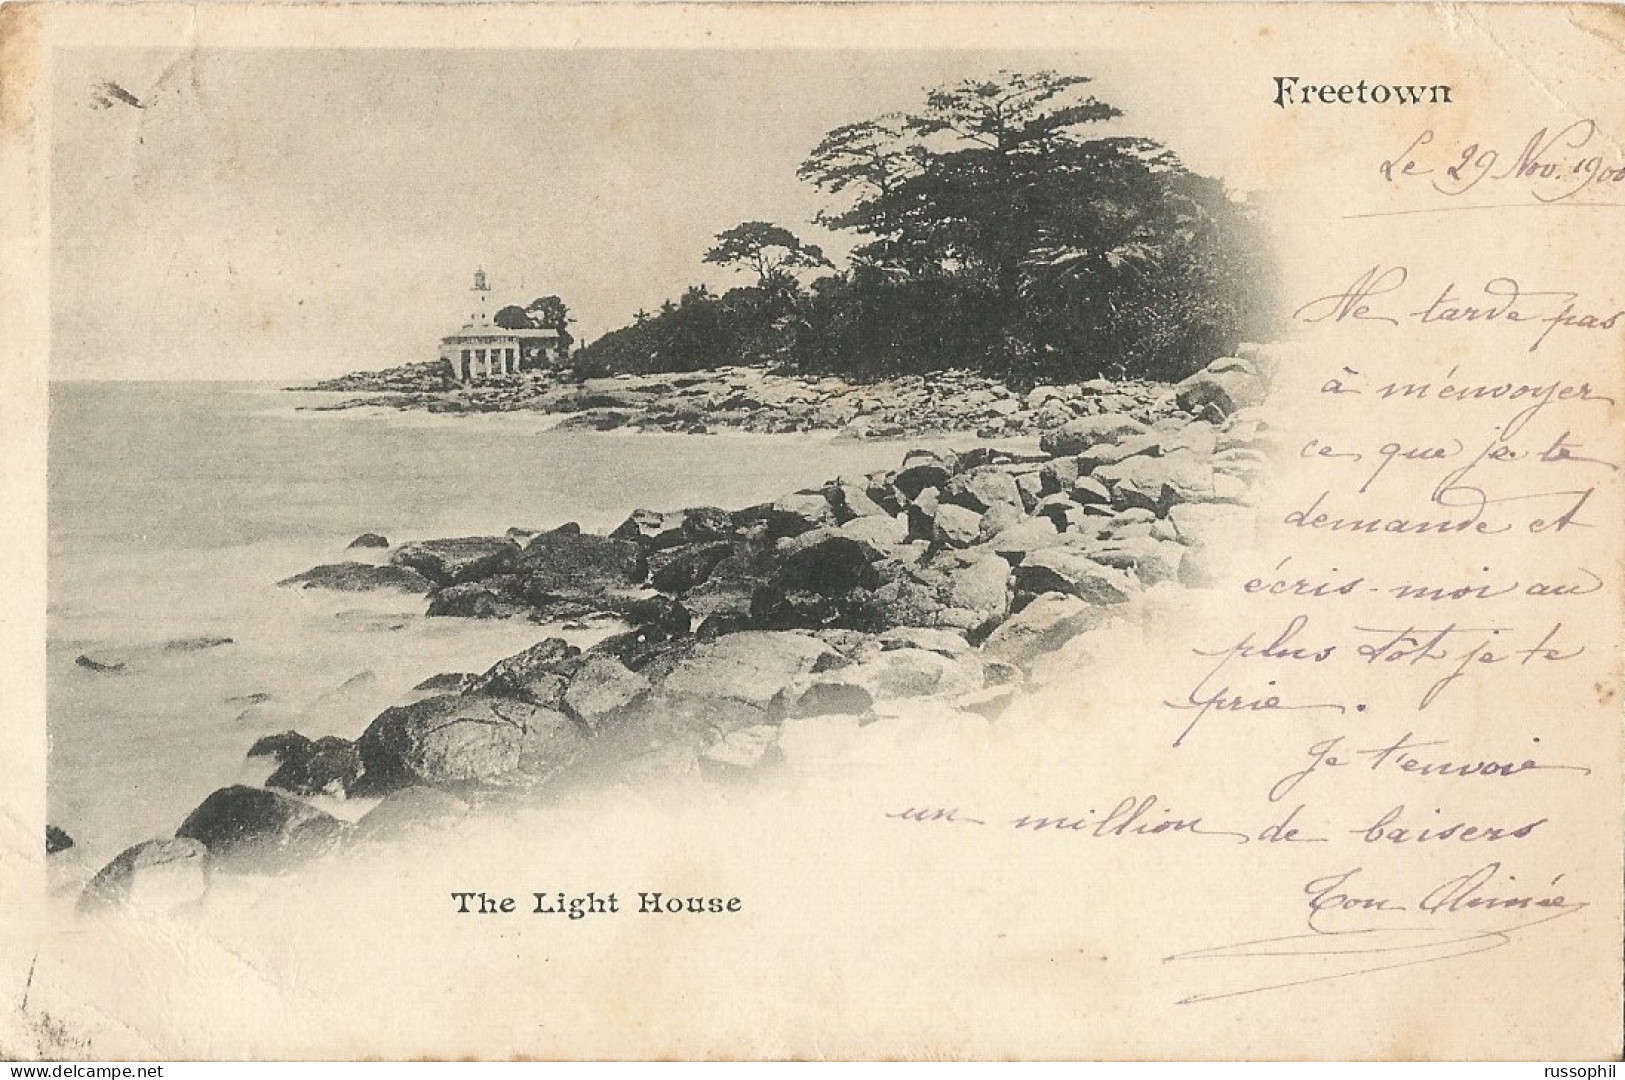 Freetown
Le 29 Nov. 1900
Ne tarde pas
à m'envoyer
ce que je te
demande et
écris-moi au
plus tôt je te
prie.
Je t'envoie
un million de baisers
Ton Aimée
The Light House
delcampe.net
russophil